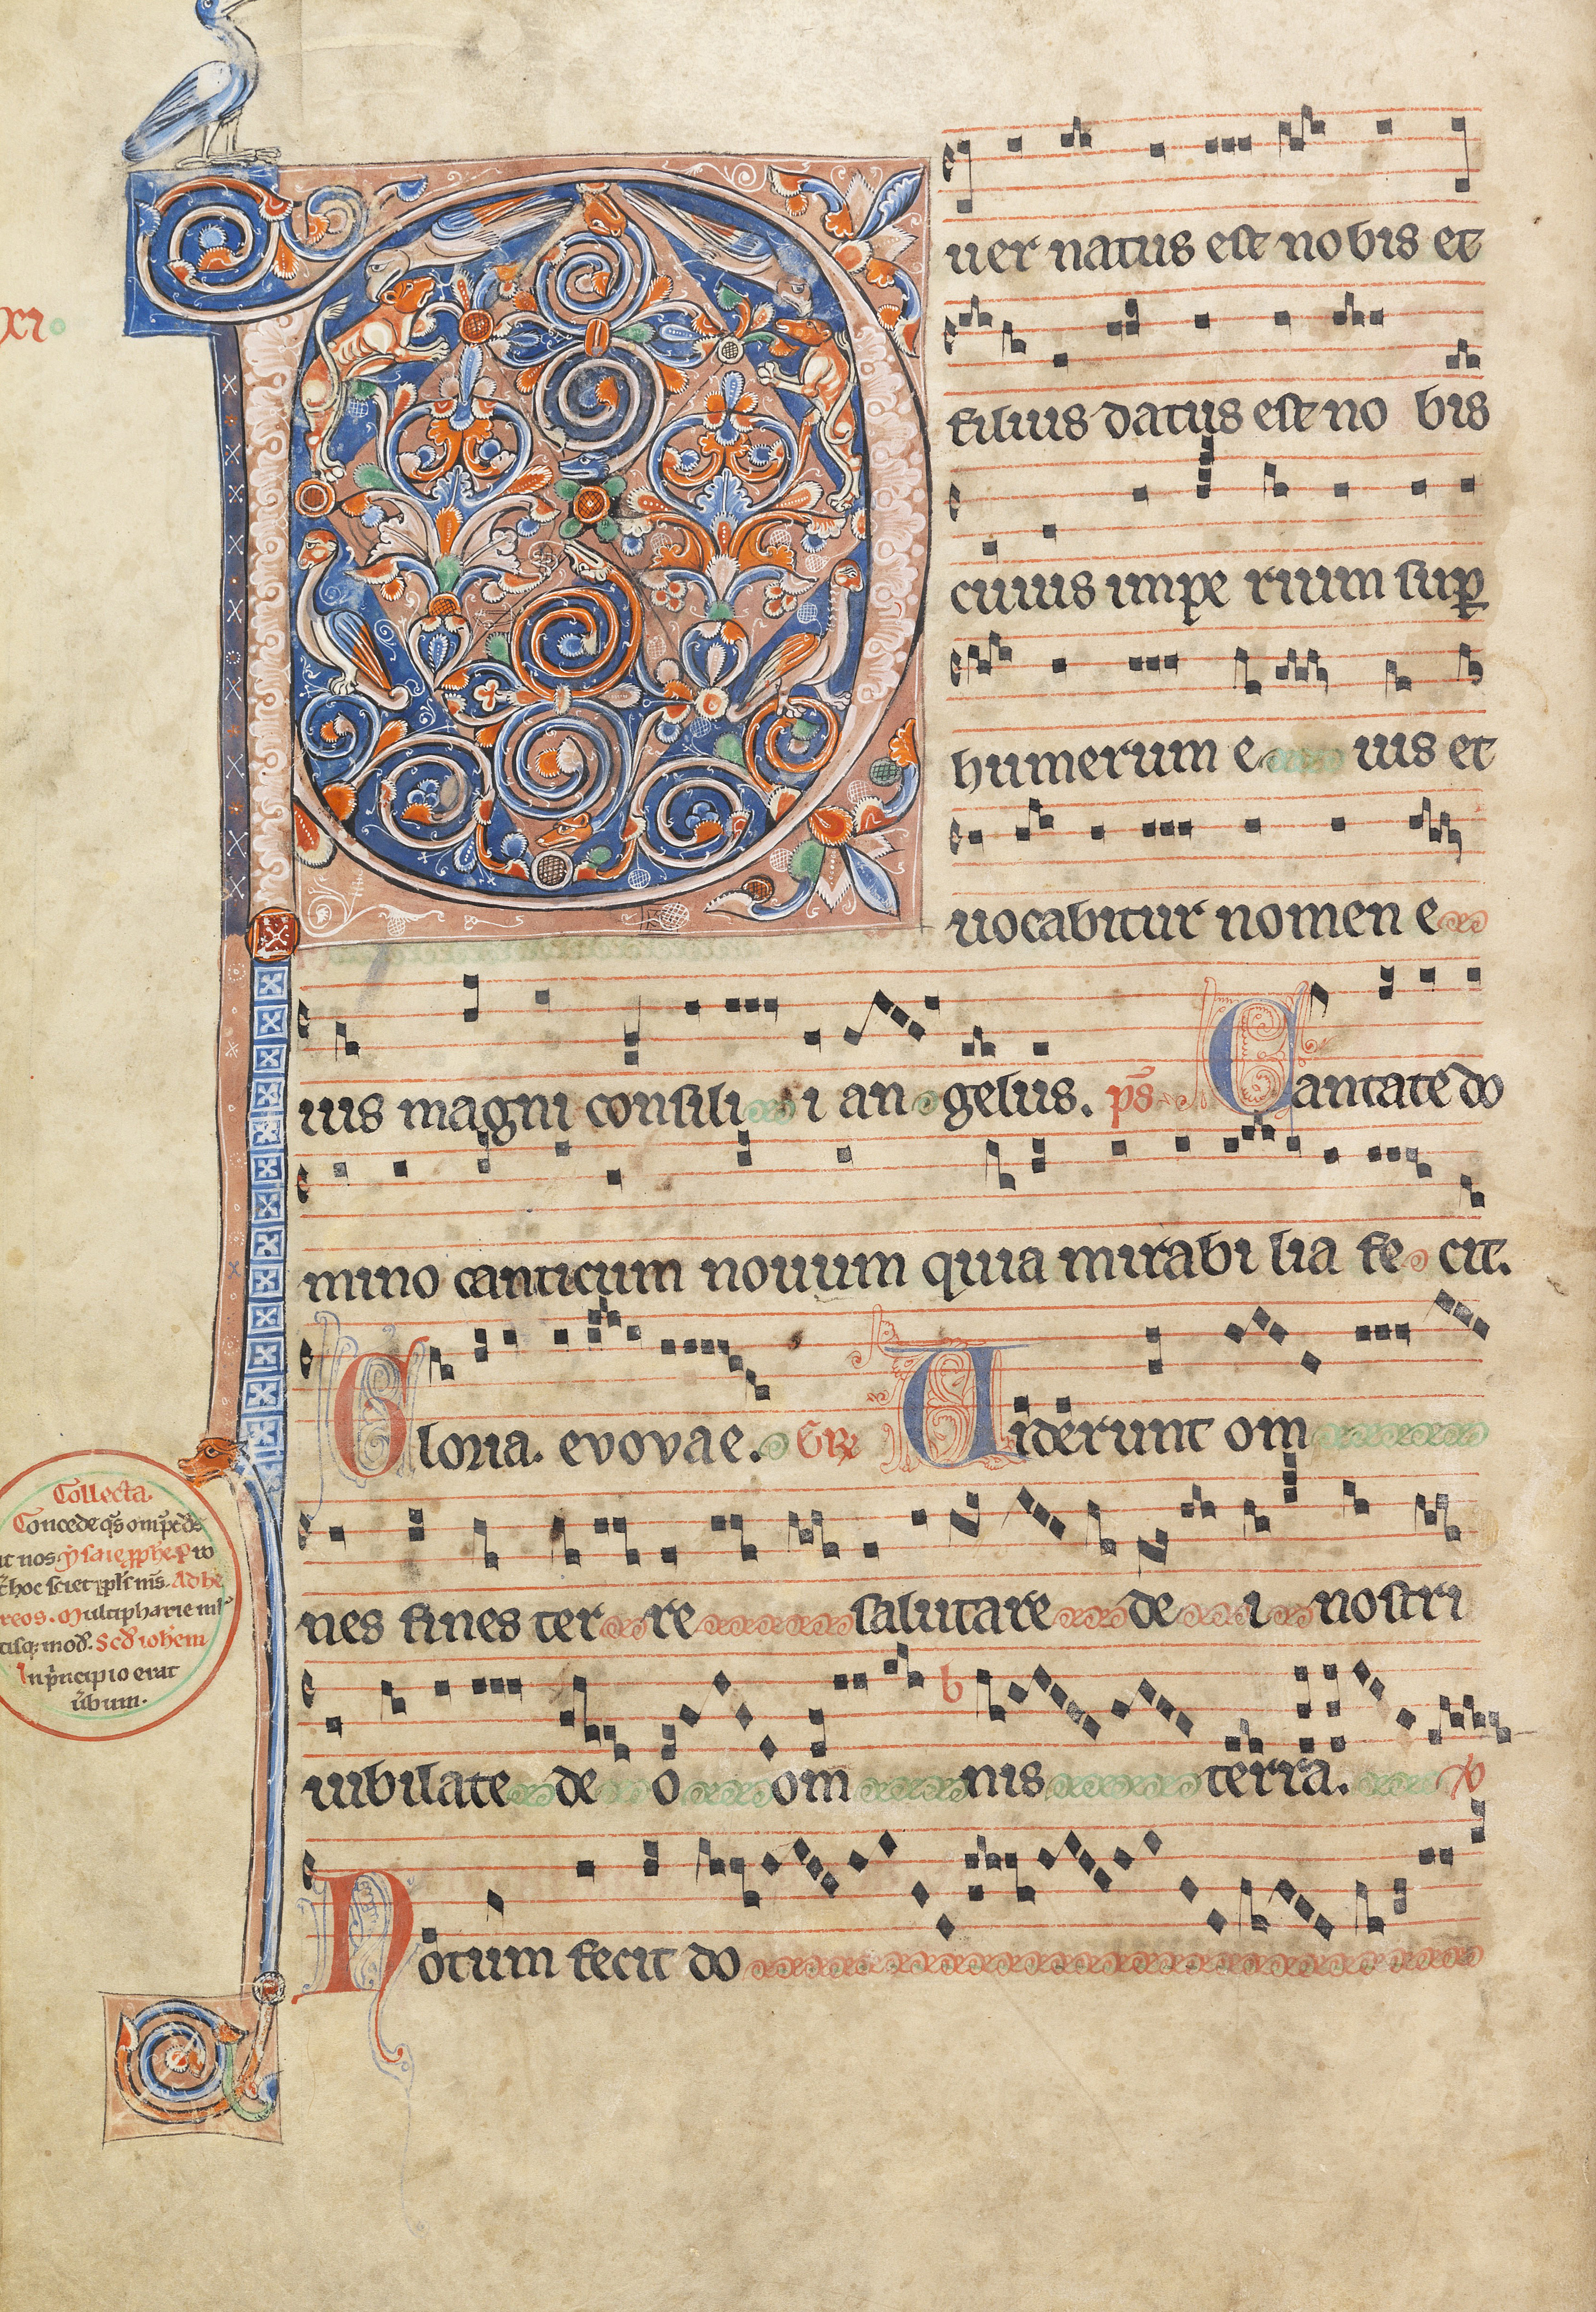 P
uer natus est nobis et
filius datus est no bis
cuius impe rium sup
humerum e ius et
uocabitur nomen e
ius magni consili i an gelus. ps Cantate do
mino canticum nouum quia mirabi lia fe cit.
Gloria. evovae. Gr Uiderunt om
nes fines ter re salutare de i nostri
iubilate de o om nis terra. V
Notum fecit do
xi
Collecta.
Concede qs omps ds
ut nos ysaie pphe. P
hoc sciet ppls ms. Ad he
reos. Multipharie
mod. Scd iohem
In pncipio erat
ubum.